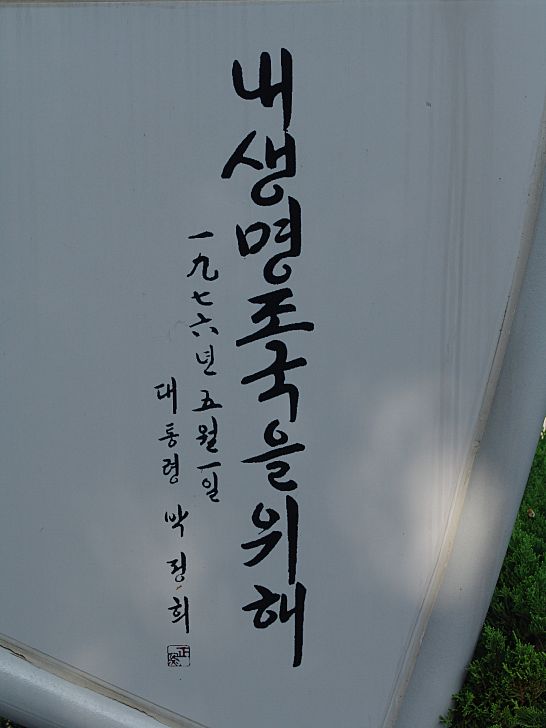 내 생명 조국을 위해
一九七六년 五월 一일
대통령 박정희